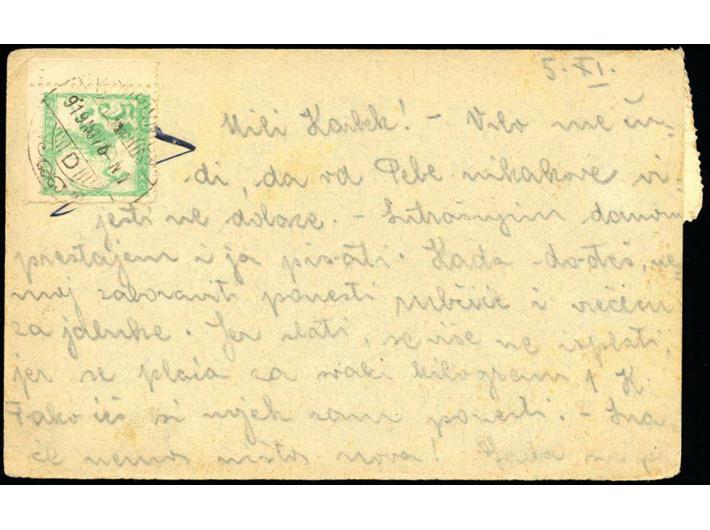 5. XI.
Mili Karlek! - Vrlo me ču-
di, da od Tebe nikakove vi-
jesti ne dolaze. - Sutrašnjim danom
prestajem i ja pisati. Kada dođeš, ne-
moj zaboraviti ponesti rubčić i vrećicu
za jabuke. Jer slati, se više ne isplati,
jer se plaća za svaki kilogram 1 K.
Tako ćeš si uvjek sam ponesti. -
će nemos nova! Sada